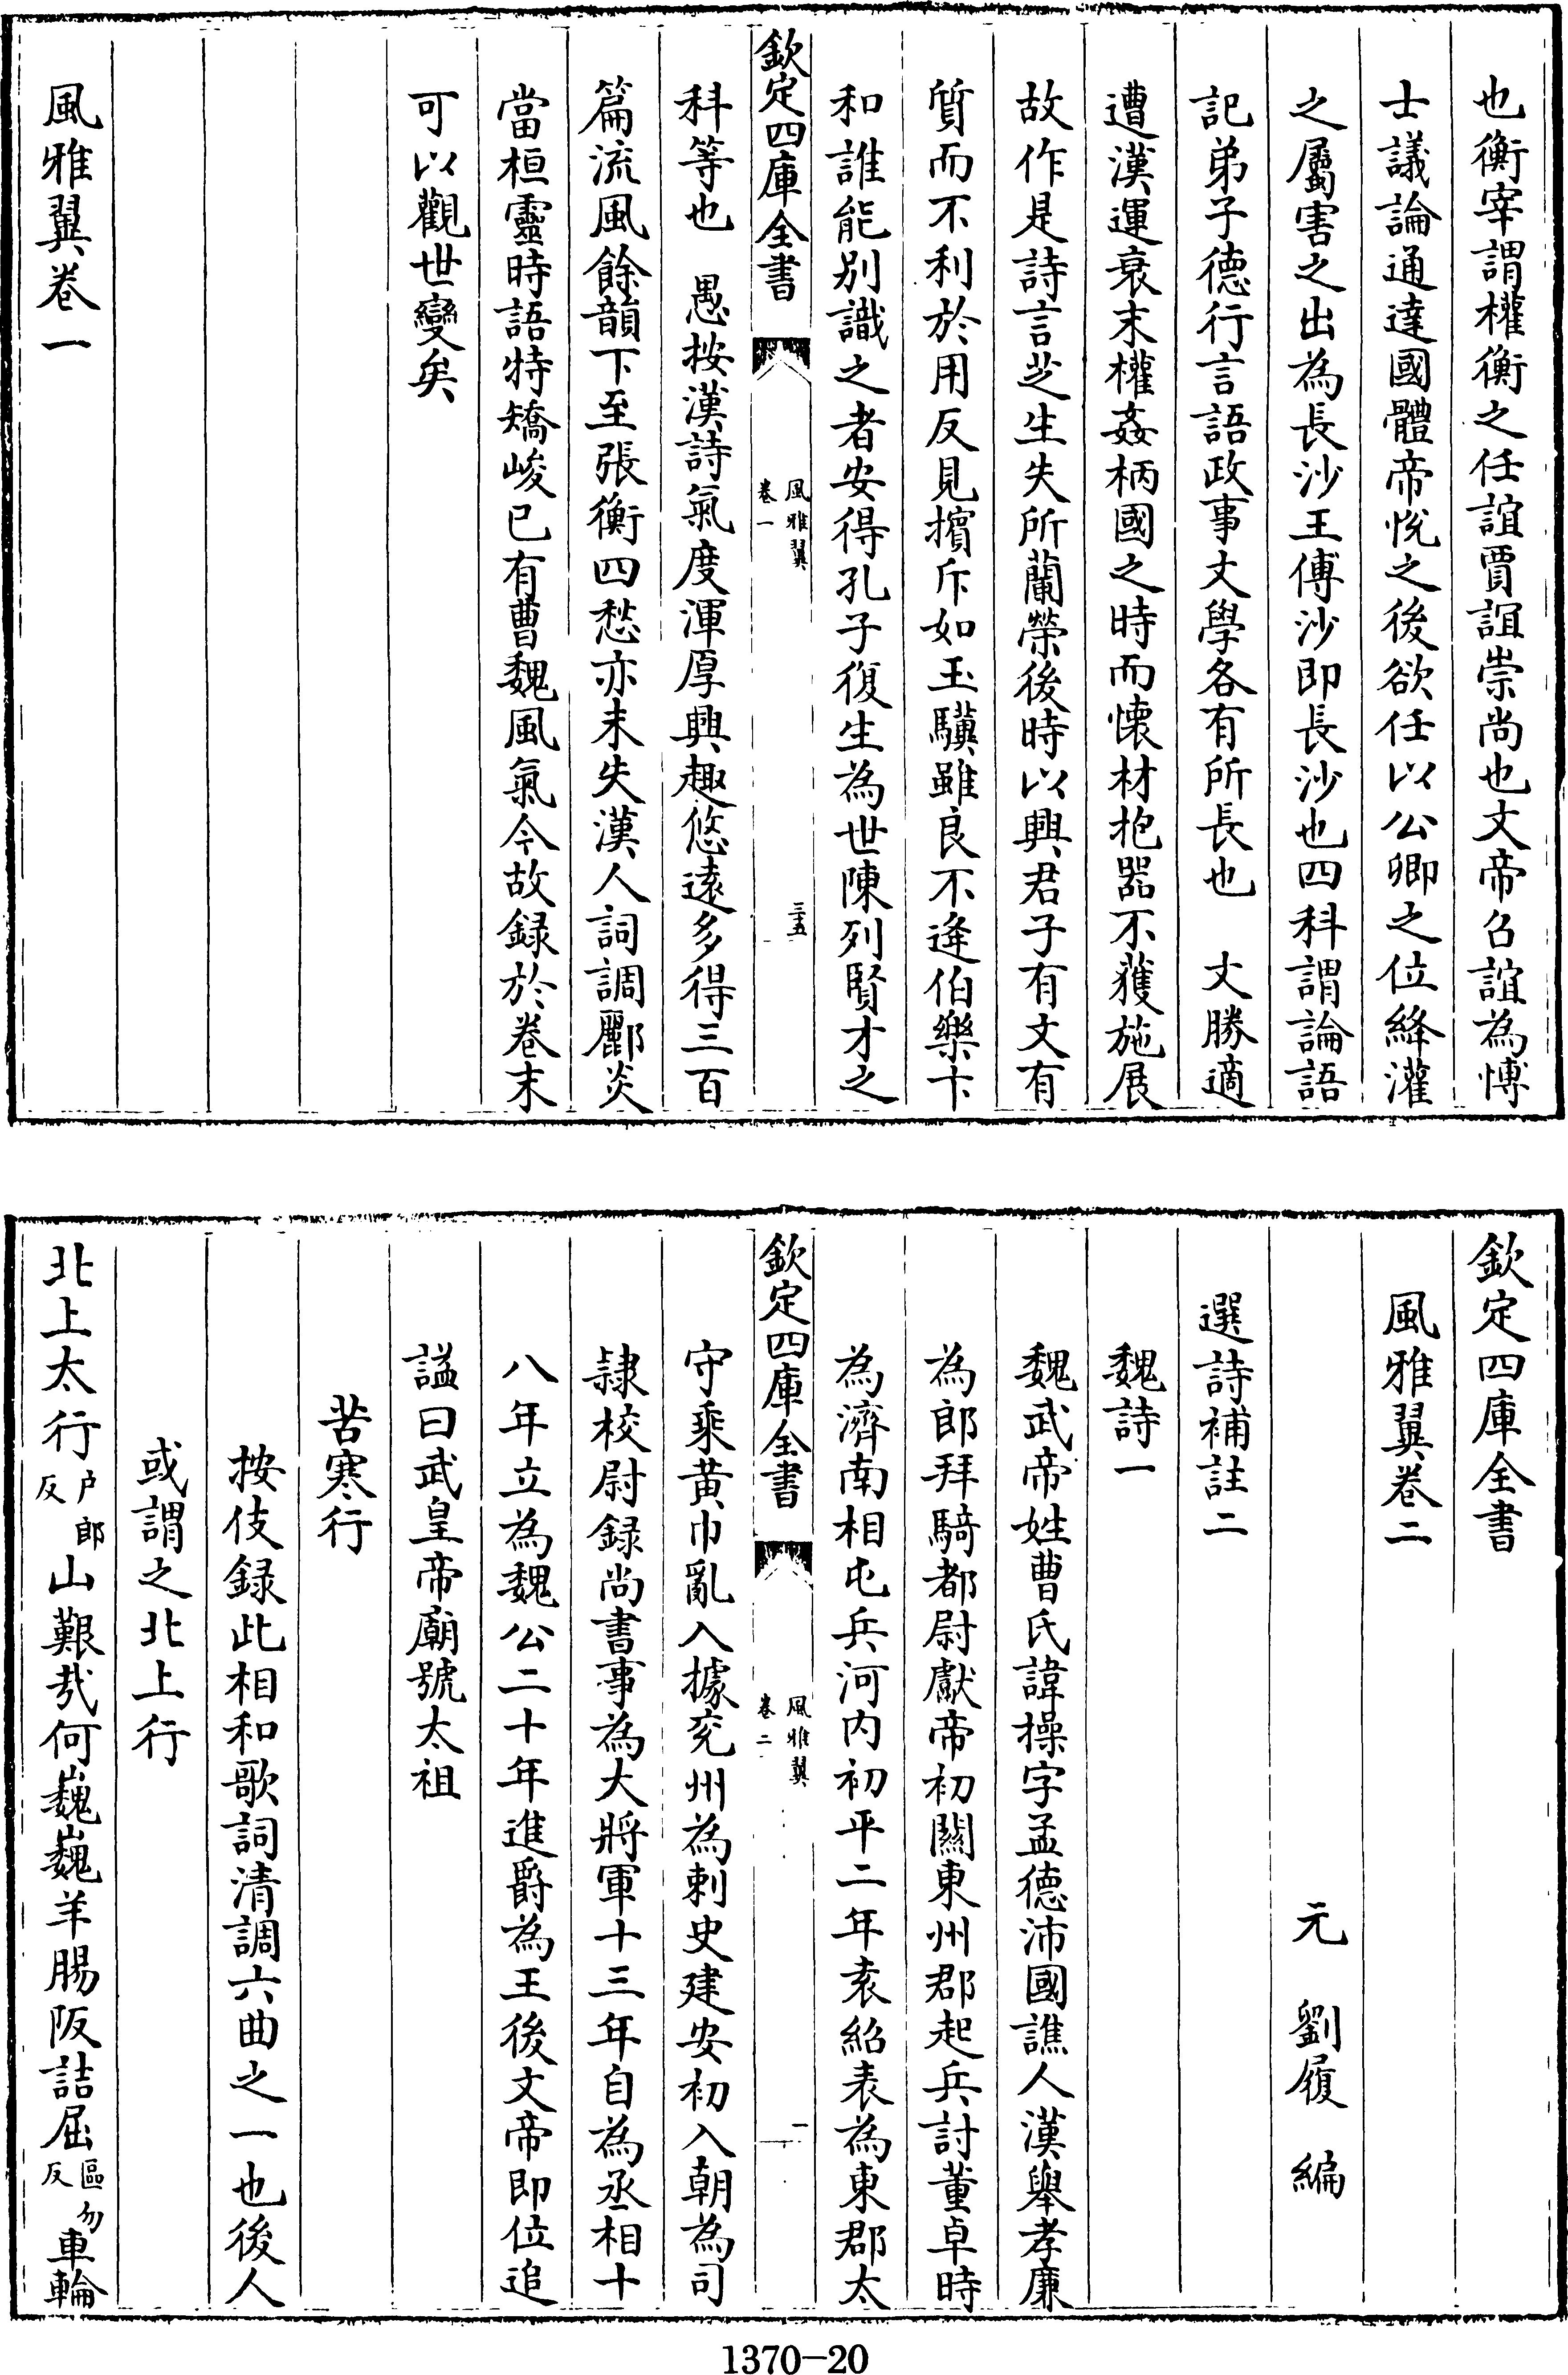 也衡宰謂權衡之任誼賈誼崇尚也文帝召誼為博
士議論通達國體帝悅之後欲任以公卿之位絳灌
之屬害之出為長沙王傅沙即長沙也四科謂論語
記弟子德行言語政事文學各有所長也　文勝適
遭漢運衰末權姦柄國之時而懷材抱器不獲施展
故作是詩言芝生失所蘭榮後時以興君子有文有
質而不利於用反見擯斥如玉驥雖良不逢伯樂卞
和誰能別識之者安得孔子復生為世陳列賢才之
欽定四庫全書
風雅翼
卷一
三五
科等也　愚按漢詩氣度渾厚興趣悠遠多得三百
篇流風餘韻下至張衡四愁亦未失漢人詞調酈炎
當桓靈時語特矯峻已有曹魏風氣今故録於卷末
可以觀世變矣
風雅翼卷一
欽定四庫全書
風雅翼卷二
元　劉履　編
選詩補註二
魏詩一
魏武帝姓曹氏諱操字孟德沛國譙人漢舉孝廉
為郎拜騎都尉獻帝初關東州郡起兵討董卓時
為濟南相屯兵河内初平二年袁紹表為東郡太
欽定四庫全書
風雅翼
卷二
一
守乘黄巾亂入據兖州為刺史建安初入朝為司
隷校尉録尚書事為大將軍十三年自為丞相十
八年立為魏公二十年進爵為王後文帝即位追
諡曰武皇帝廟號太祖
苦寒行
按伎録此相和歌詞清調六曲之一也後人
或謂之北上行
北上太行户郎反山艱哉何巍巍羊腸阪詰屈區勿反車輪
1370-20